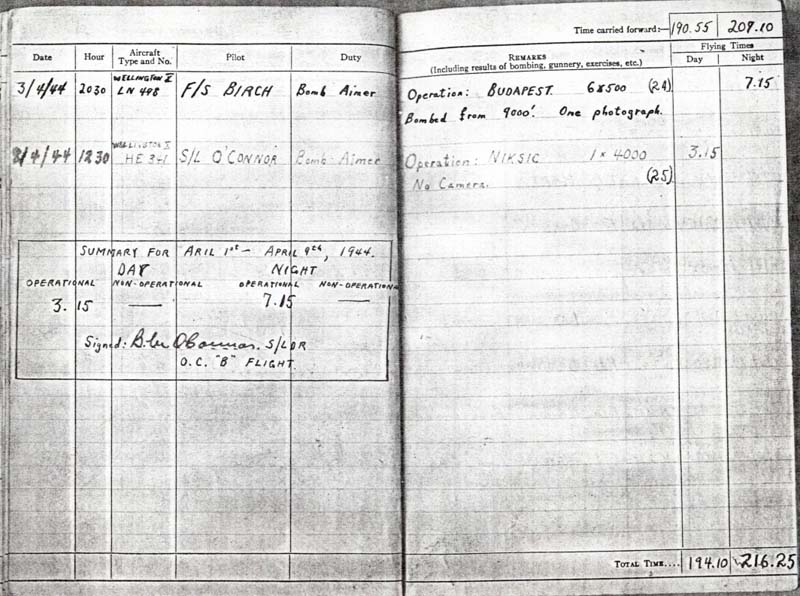 Time carried forward:— 190.55 207.10
Date Hour Aircraft Type and No. Pilot Duty REMARKS (Including results of bombing, gunnery, exercises, etc.) Flying Times Day Night
3/4/44 2030 WELLINGTON X LN 498 F/S BIRCH Bomb Aimer Operation: BUDAPEST. 6x500 (24) 7.15
Bombed from 9000'. One photograph.
/4/44 1230 WELLINGTON X HE S/L O'CONNOR Bomb Aimer Operation: NIKSIC 1 x 4000 3.15
No Camera. (25)
SUMMARY FOR ARIL 1st — APRIL 9th, 1944.
DAY NIGHT
OPERATIONAL NON-OPERATIONAL OPERATIONAL NON-OPERATIONAL
3.15 — 7.15 —
Signed: O'Connor. S/LDR
O.C. "B" FLIGHT.
TOTAL TIME.... 194.10 216.25